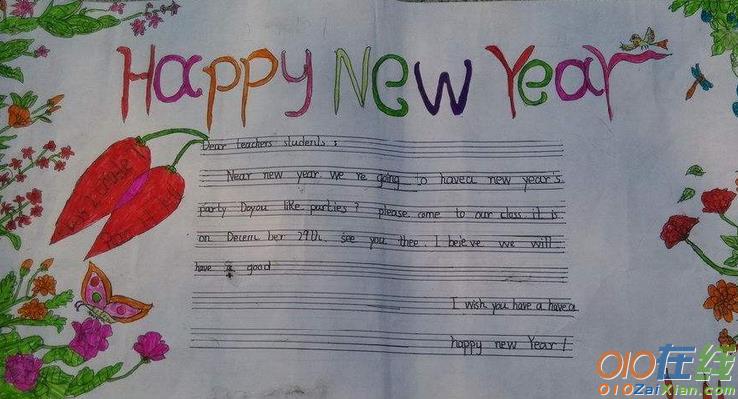 Happy New Year
Dear teachers students :
Near new year we re going to havea new year's
party Doyou like parties? please come to our class it is
on Decem ber 29th. see you thee. I beieve we will
have a good
I wish you have a havea
happy new Year!
010在线
010ZaiXian.com